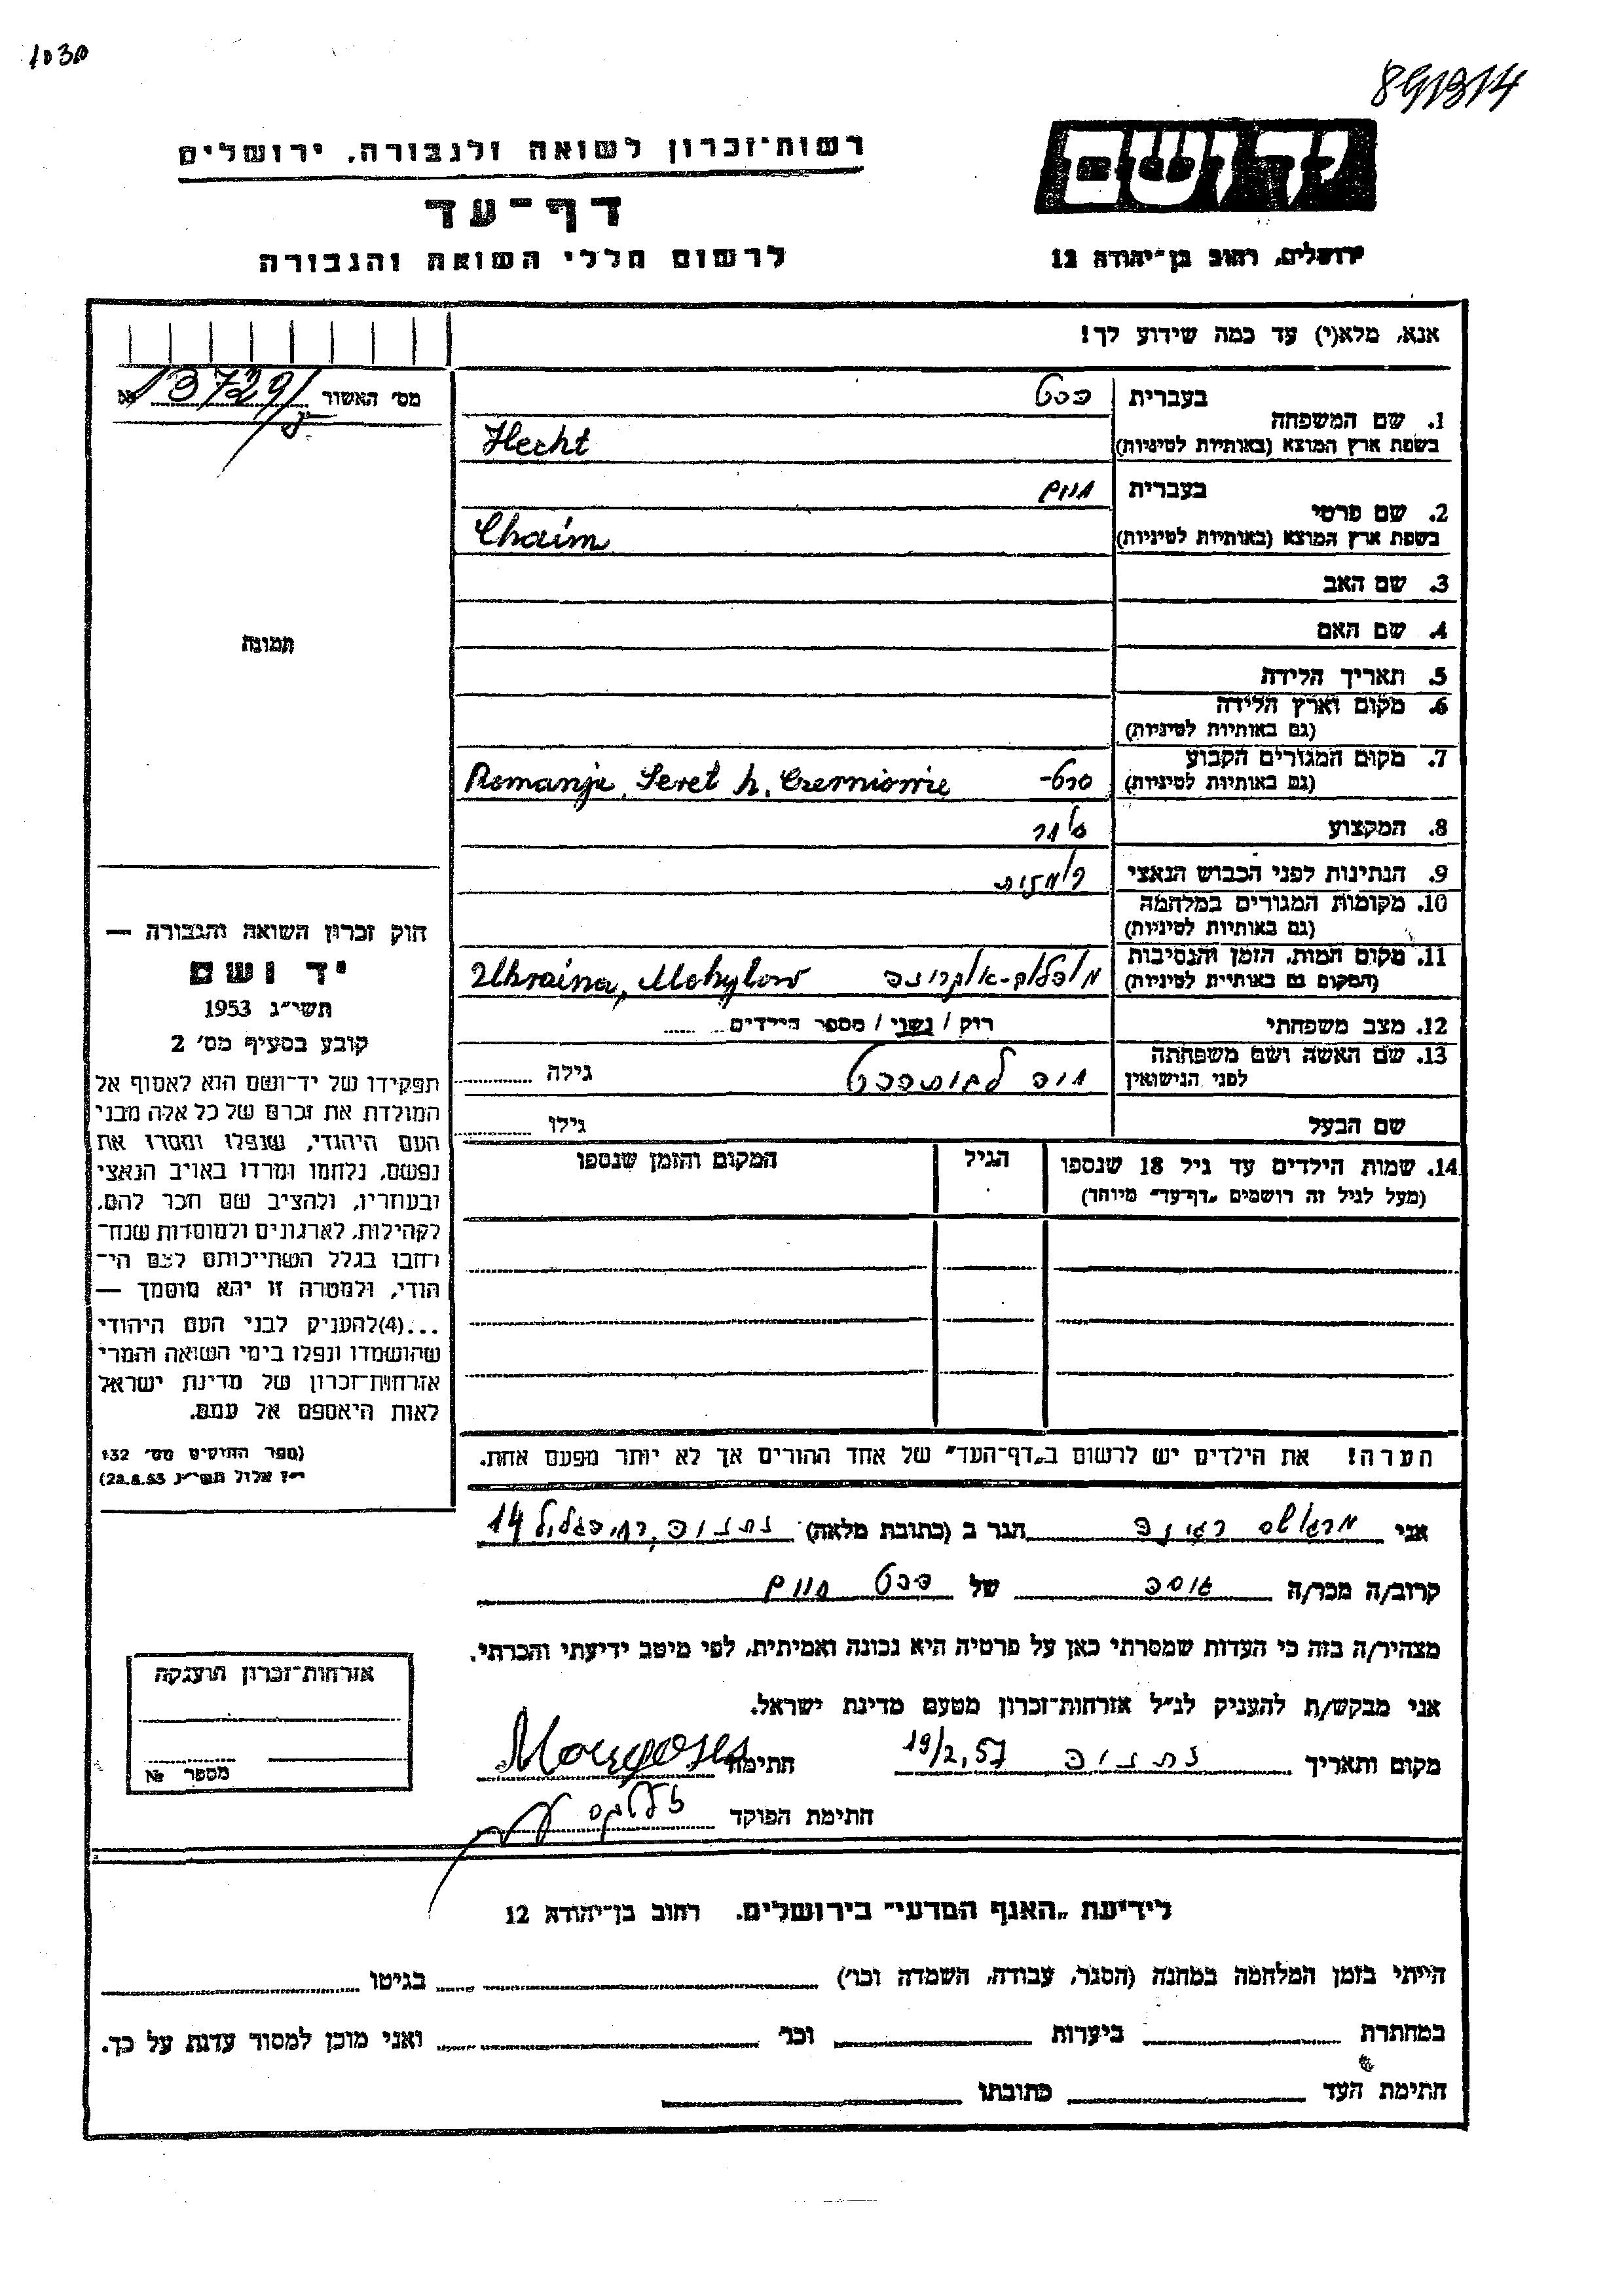 1030
891314
יד ושם
רשות־זכרון לשואה ולגבורה, ירושלים
דף־עד
לרשום חללי השואה והגבורה
ירושלים, רחוב בן־יהודה 12
אנא, מלא(י) עד כמה שידוע לך!
מס' האשור 13729 №
תמונה
1. שם המשפחה
בעברית הכט
בשפת ארץ המוצא (באותיות לטיניות) Hecht
2. שם פרטי
בעברית חיים
בשפת ארץ המוצא (באותיות לטיניות) Chaim
3. שם האב
4. שם האם
5. תאריך הלידה
6. מקום וארץ הלידה
(גם באותיות לטיניות)
7. מקום המגורים הקבוע
(גם באותיות לטיניות) סרט- Romanja, Seret h. Czerniowie
8. המקצוע סוחר
9. הנתינות לפני הכבוש הנאצי רומנית
10. מקומות המגורים במלחמה
(גם באותיות לטיניות)
11. מקום המות, הזמן והנסיבות
(המקום גם באותיות לטיניות) מוהלוב-אוקרינה Ukraina, Mohylow
12. מצב משפחתי רוק / נשוי / מספר הילדים
13. שם האשה ושם משפחתה
לפני הנישואין חיה גילה
שם הבעל גילו
14. שמות הילדים עד גיל 18 שנספו הגיל המקום והזמן שנספו
(מעל לגיל זה רושמים „דף־עד" מיוחד)
הערה! את הילדים יש לרשום ב„דף־העד" של אחד ההורים אך לא יותר מפעם אחת.
חוק זכרון השואה והגבורה —
יד ושם
תשי"ג 1953
קובע בסעיף מס' 2
תפקידו של יד־ושם הוא לאסוף אל
המולדת את זכרם של כל אלה מבני
העם היהודי, שנפלו ומסרו את
נפשם, נלחמו ומרדו באויב הנאצי
ובעוזריו, ולהציב שם וזכר להם,
לקהילות, לארגונים ולמוסדות שנח־
רבו בגלל השתייכותם לעם הי־
הודי, ולמטרה זו יהא מוסמך —
...(4)להעניק לבני העם היהודי
שהושמדו ונפלו בימי השואה והמרי
אזרחות־זכרון של מדינת ישראל
לאות היאספם אל עמם.
(ספר החוקים מס' 132
י"ז אלול תשי"ג 28.8.53)
אני מרגושס רגינה הגר ב (כתובת מלאה) נתניה, רח' הגליל 14
קרוב/ה מכר/ה גיסה של הכט חיים
מצהיר/ה בזה כי העדות שמסרתי כאן על פרטיה היא נכונה ואמיתית, לפי מיטב ידיעתי והכרתי.
אני מבקש/ת להעניק לנ"ל אזרחות־זכרון מטעם מדינת ישראל.
מקום ותאריך נתניה 19/2.57 חתימה Margoses
חתימת הפוקד
אזרחות־זכרון הוענקה
מספר №
לידיעת „האגף המדעי" בירושלים, רחוב בן־יהודה 12
הייתי בזמן המלחמה במחנה (הסגר, עבודה, השמדה וכו') בגיטו
במחתרת ביערות וכו' ואני מוכן למסור עדות על כך.
חתימת העד כתובתו